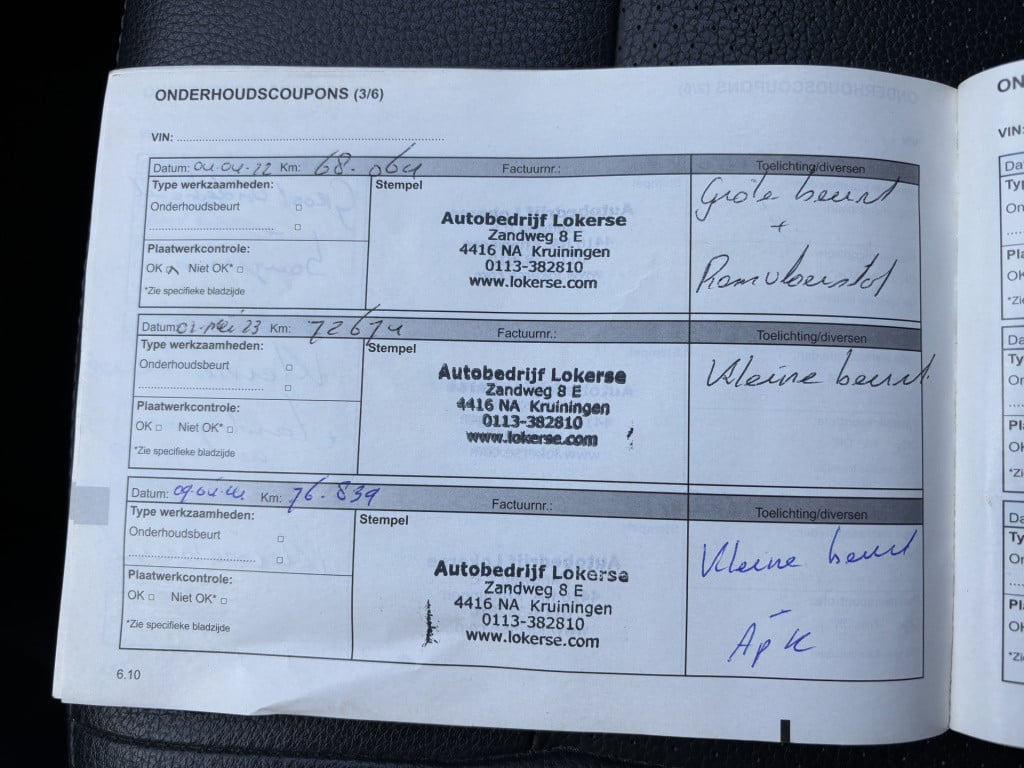 ONDERHOUDSCOUPONS (3/6)
VIN:
Datum: 04-04-22 Km: 68.064 Factuurnr.: Toelichting/diversen
Type werkzaamheden:
Onderhoudsbeurt
Plaatwerkcontrole:
OK Niet OK*
*Zie specifieke bladzijde
Stempel
Autobedrijf Lokerse
Zandweg 8 E
4416 NA Kruiningen
0113-382810
www.lokerse.com
Grote beurt
+
Remvloeistof
Datum: 01-Mei 23 Km: 72674 Factuurnr.: Toelichting/diversen
Type werkzaamheden:
Onderhoudsbeurt
Plaatwerkcontrole:
OK Niet OK*
*Zie specifieke bladzijde
Stempel
Autobedrijf Lokerse
Zandweg 8 E
4416 NA Kruiningen
0113-382810
www.lokerse.com
Kleine beurt
Datum: Km: 76.839 Factuurnr.: Toelichting/diversen
Type werkzaamheden:
Onderhoudsbeurt
Plaatwerkcontrole:
OK Niet OK*
*Zie specifieke bladzijde
Stempel
Autobedrijf Lokerse
Zandweg 8 E
4416 NA Kruiningen
0113-382810
www.lokerse.com
Kleine beurt
-
ApK
6.10
ON
VIN: